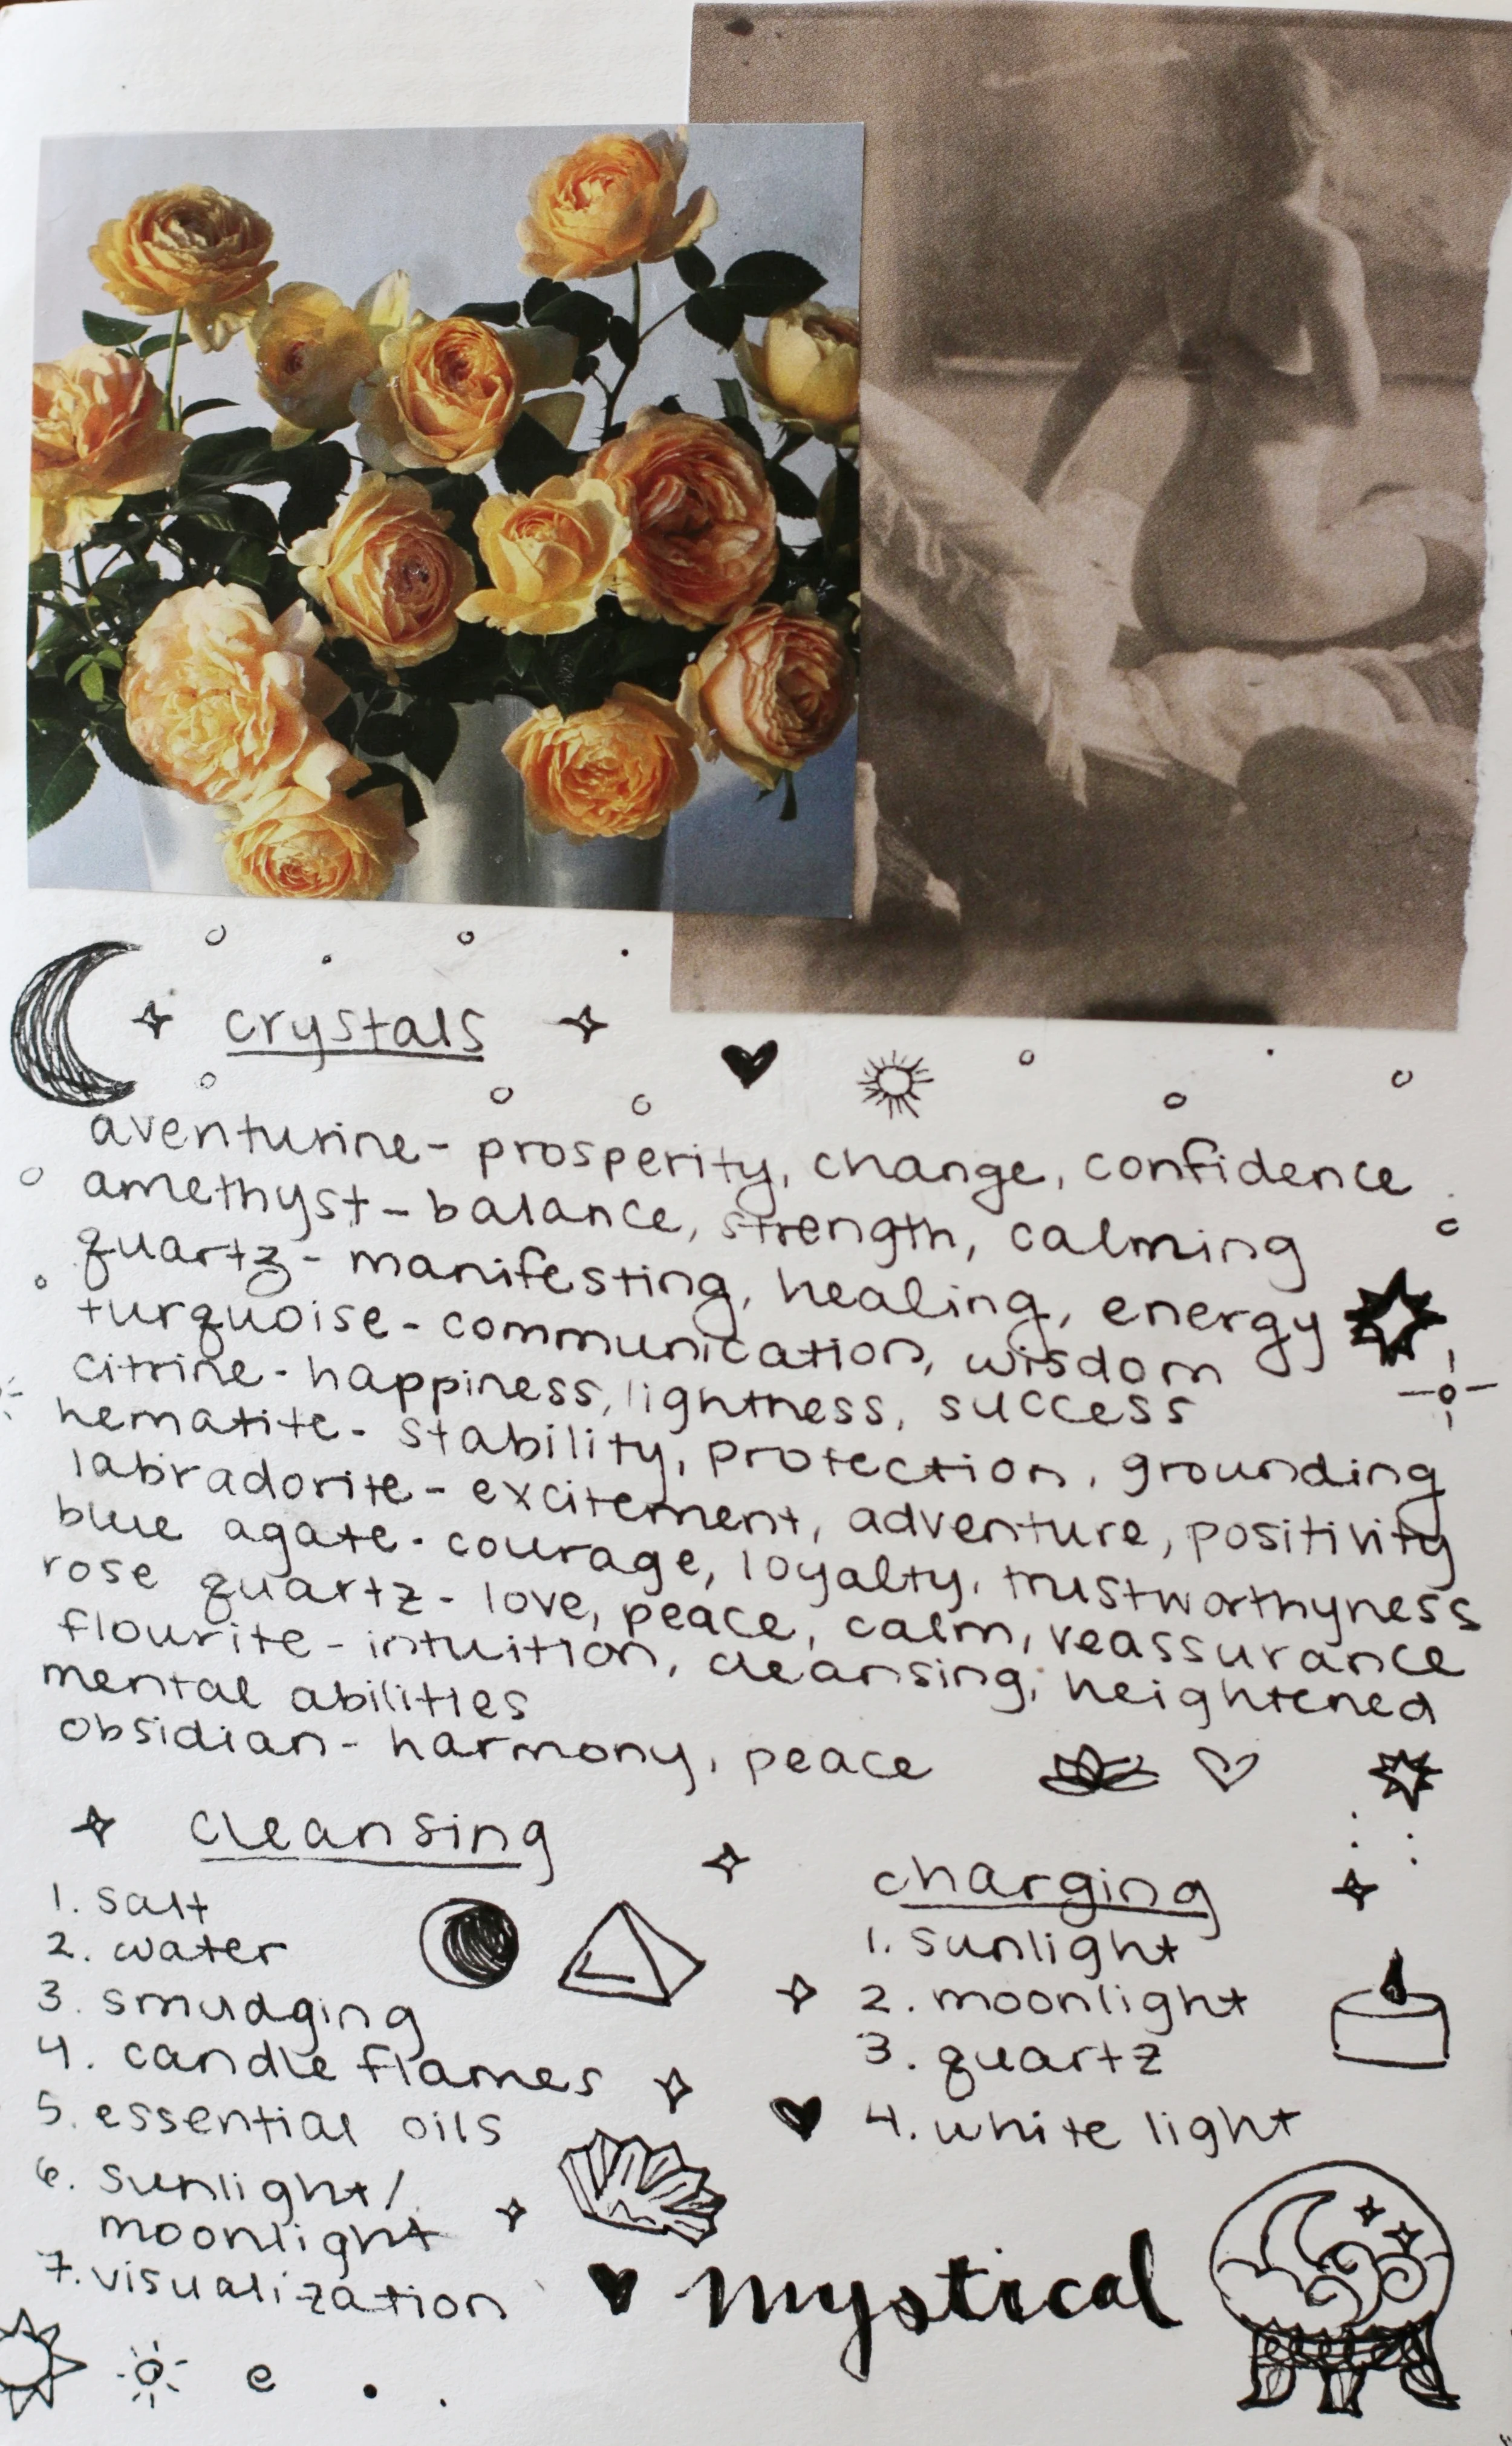 crystals
aventurine - prosperity, change, confidence
amethyst - balance, strength, calming
quartz - manifesting, healing, energy
turquoise - communication, wisdom
citrine - happiness, lightness, success
hematite - stability, protection, grounding
labradorite - excitement, adventure, positivity
blue agate - courage, loyalty, trustworthyness
rose quartz - love, peace, calm, reassurance
flourite - intuition, cleansing, heightened
mental abilities
obsidian - harmony, peace
cleansing
1. salt
2. water
3. smudging
4. candle flames
5. essential oils
6. sunlight/
moonlight
7. visualization
charging
1. sunlight
2. moonlight
3. quartz
4. white light
mystical